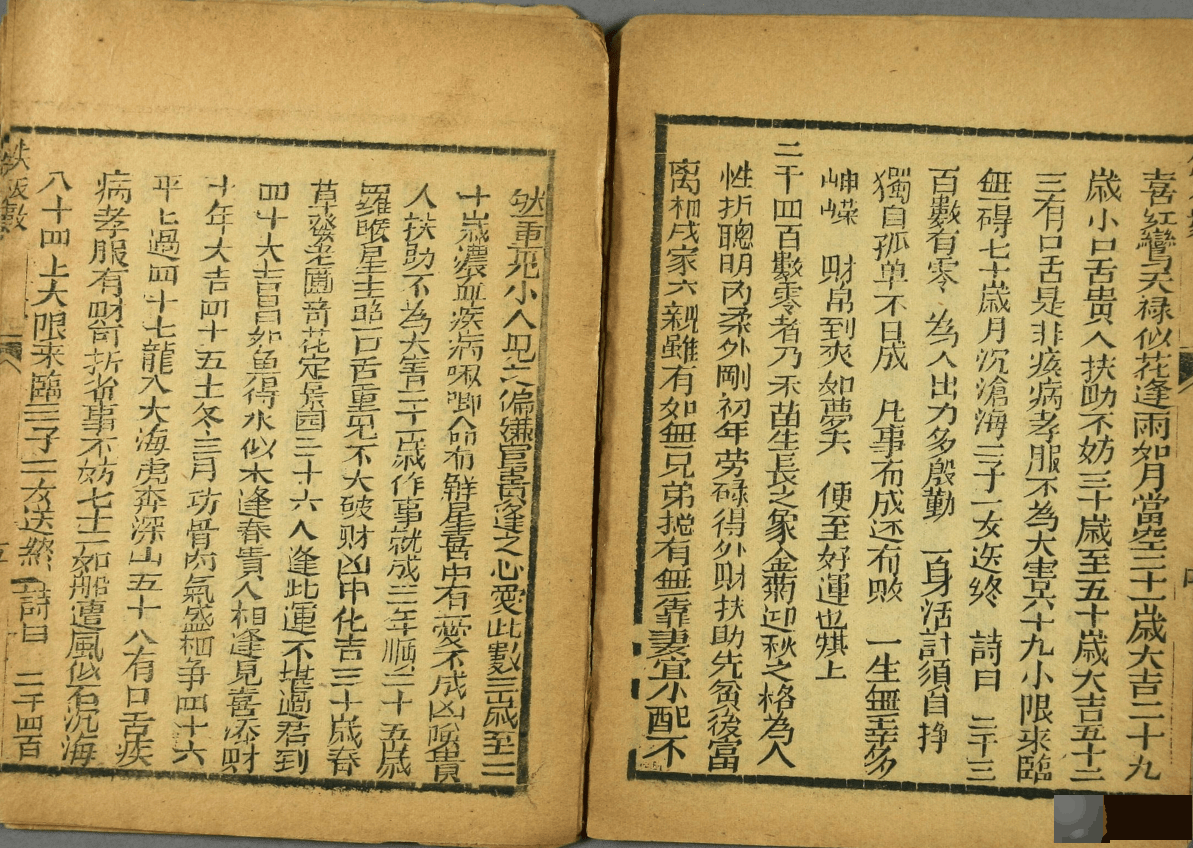 喜紅鸞天禄似花逢雨如月當空三十歲大吉二十九
歲小口舌貴人扶助不妨三十歲至五十歲大吉五十二
三有口舌是非疾病孝服不為大害六十九小限來臨
無碍七十歲月沉滄海二子一女送終 詩曰 二千三
百數有零 為人出力多殷勤 一身活計須自挣
獨自孤单不日成 凡事有成还有敗 一生無幸多
岫嵘 财帛到爽如夢夫 便至好運也犋上
二千四百數零者乃禾苗生長之象金菊迎秋之格為人
性折聰明内柔外剛初年劳碌得外财扶助先貧後富
离祖成家六親雖有如無兄弟挖有無靠妻宜小配不
然重見小人見之偏嫌官貴逢之心愛此數三歲至二
十歲濃血疾病啾唧人命有觧星喜由有憂不成凶險貴
人扶助不為大害二十一歲作事就成三年順二十五歲
羅睺星主照口舌重見不大破财凶中化吉三十歲春
草發生圃苛花定景园三十六人逢此運不堪過君到
四十大吉昌如魚得水似木逢春貴人相逢見喜添财
十年大吉四十五土冬三月功骨肉氣盛相争四十六
平七過四十七龍入大海虎奔深山五十八有口舌疾
病孝服有财苛折省事不妨七十二如船遭風似石沉海
八十四上大限來臨三子二女送終 詩曰 二千四百
鉄版數
五